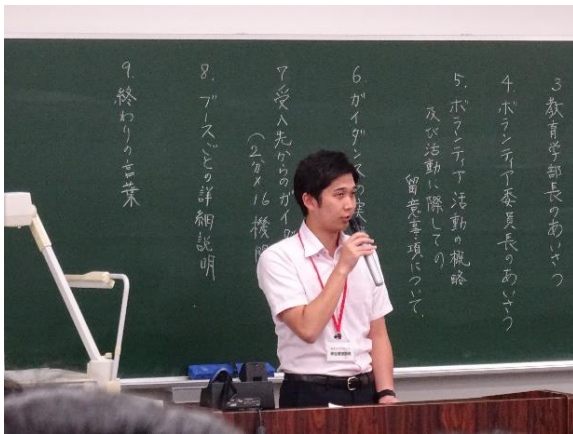 3 教育学部長のあいさつ
4. ボランティア委員長のあいさつ
5. ボランティア活動の概略
及び活動に際しての
留意事項について.
6. ガイダンスの
7 受入先からのガイダ
(2分×16機関
8. ブースごとの詳細説明
9. 終わりの言葉